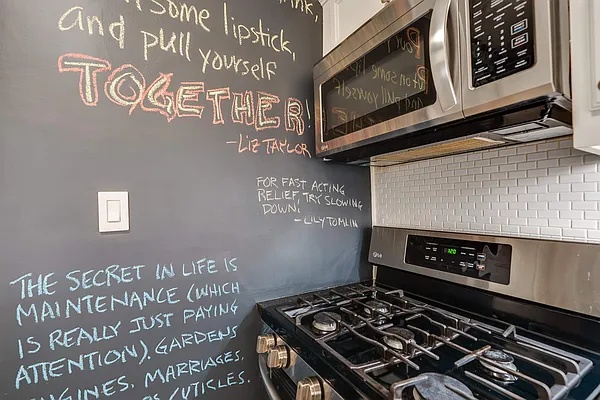 on some lipstick,
and pull yourself
TOGETHER!
-Liz TAYLOR
FOR FAST ACTING
RELIEF, TRY SLOWING
DOWN.
-LILY TOMLIN
THE SECRET IN LIFE IS
MAINTENANCE (WHICH
IS REALLY JUST PAYING
ATTENTION). GARDENS
ENGINES, MARRIAGES,
CUTICLES.
LG